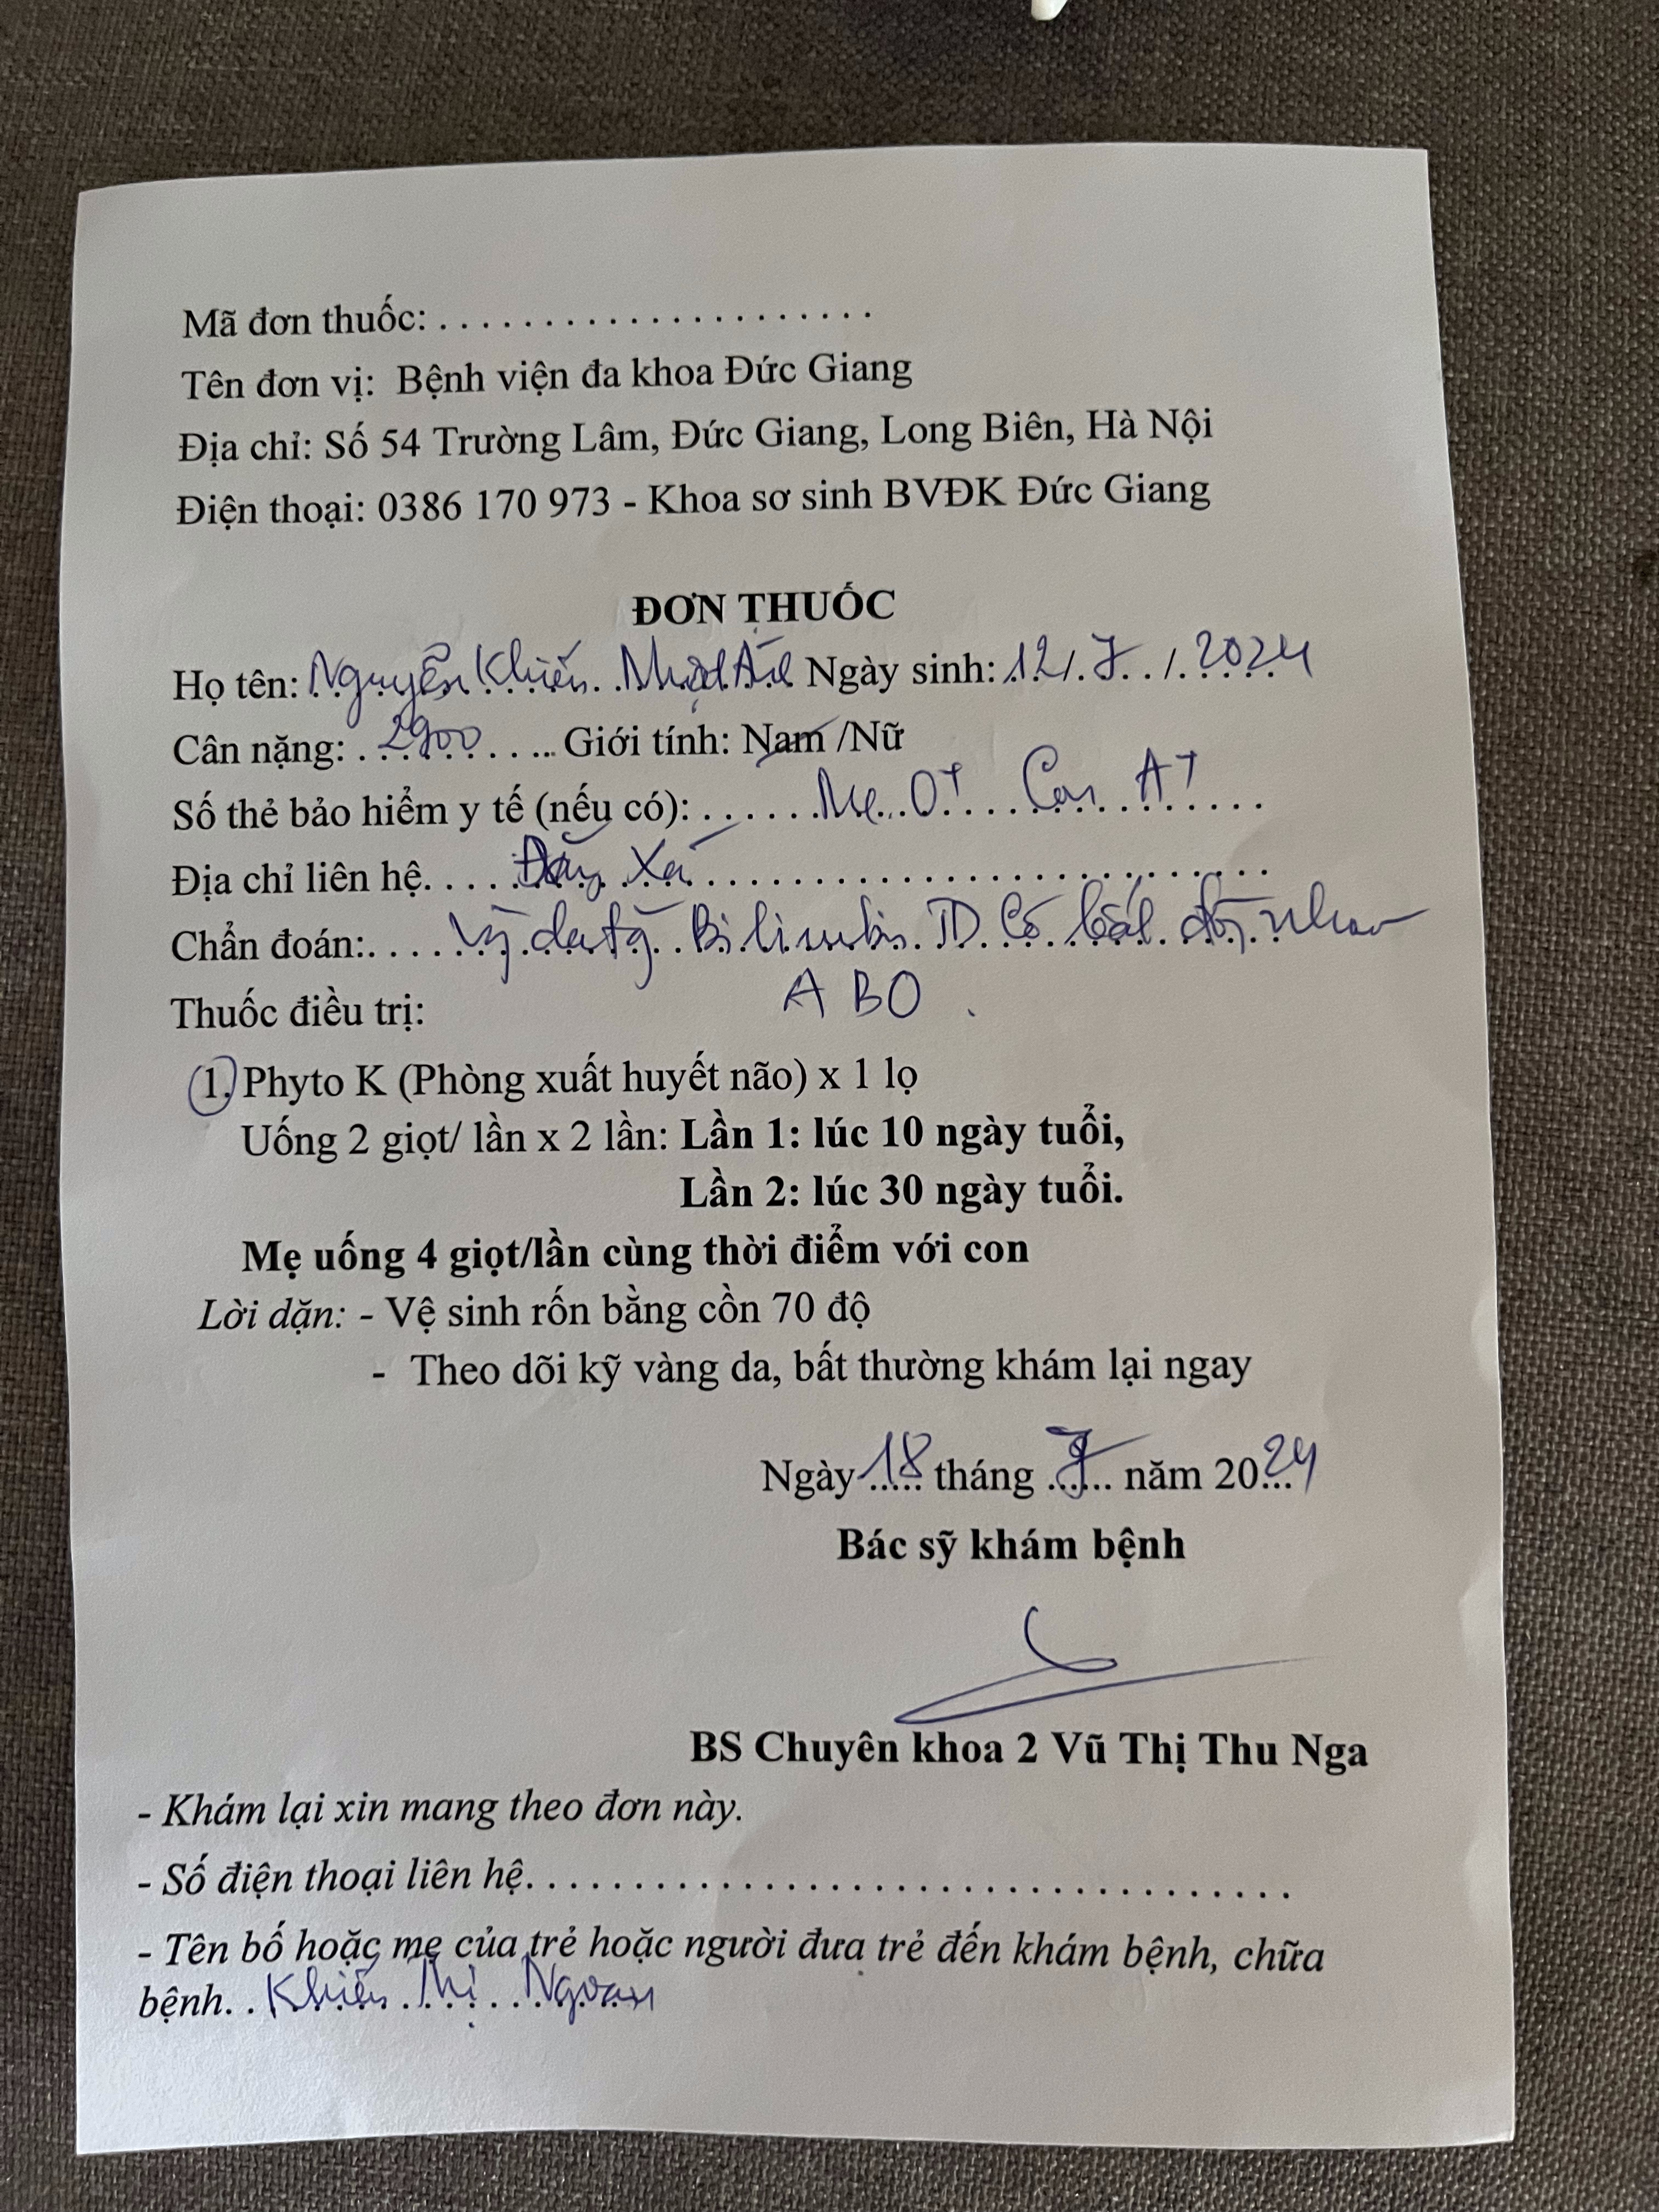 Mã đơn thuốc: . . . . . . . . . . . . . . . . . . . . .
Tên đơn vị: Bệnh viện đa khoa Đức Giang
Địa chỉ: Số 54 Trường Lâm, Đức Giang, Long Biên, Hà Nội
Điện thoại: 0386 170 973 - Khoa sơ sinh BVĐK Đức Giang
ĐƠN THUỐC
Họ tên: Nguyễn Khiếu Nhật Ngày sinh: 12/7/2024
Cân nặng: 2900 Giới tính: Nam /Nữ
Số thẻ bảo hiểm y tế (nếu có): Mẹ O+ Con A+
Địa chỉ liên hệ. Đặng Xá
Chẩn đoán: Bilirubin TD Có bất đồng nhóm
ABO
Thuốc điều trị:
1. Phyto K (Phòng xuất huyết não) x 1 lọ
Uống 2 giọt/ lần x 2 lần: Lần 1: lúc 10 ngày tuổi,
Lần 2: lúc 30 ngày tuổi.
Mẹ uống 4 giọt/lần cùng thời điểm với con
Lời dặn: - Vệ sinh rốn bằng cồn 70 độ
- Theo dõi kỹ vàng da, bất thường khám lại ngay
Ngày 18 tháng 7 năm 2024
Bác sỹ khám bệnh
BS Chuyên khoa 2 Vũ Thị Thu Nga
- Khám lại xin mang theo đơn này.
- Số điện thoại liên hệ. . . . . . . . . . . . . . . . . . . . . . . . . . . . . . . . . . . .
- Tên bố hoặc mẹ của trẻ hoặc người đưa trẻ đến khám bệnh, chữa
bệnh. . Khiếu Thị Ngoan